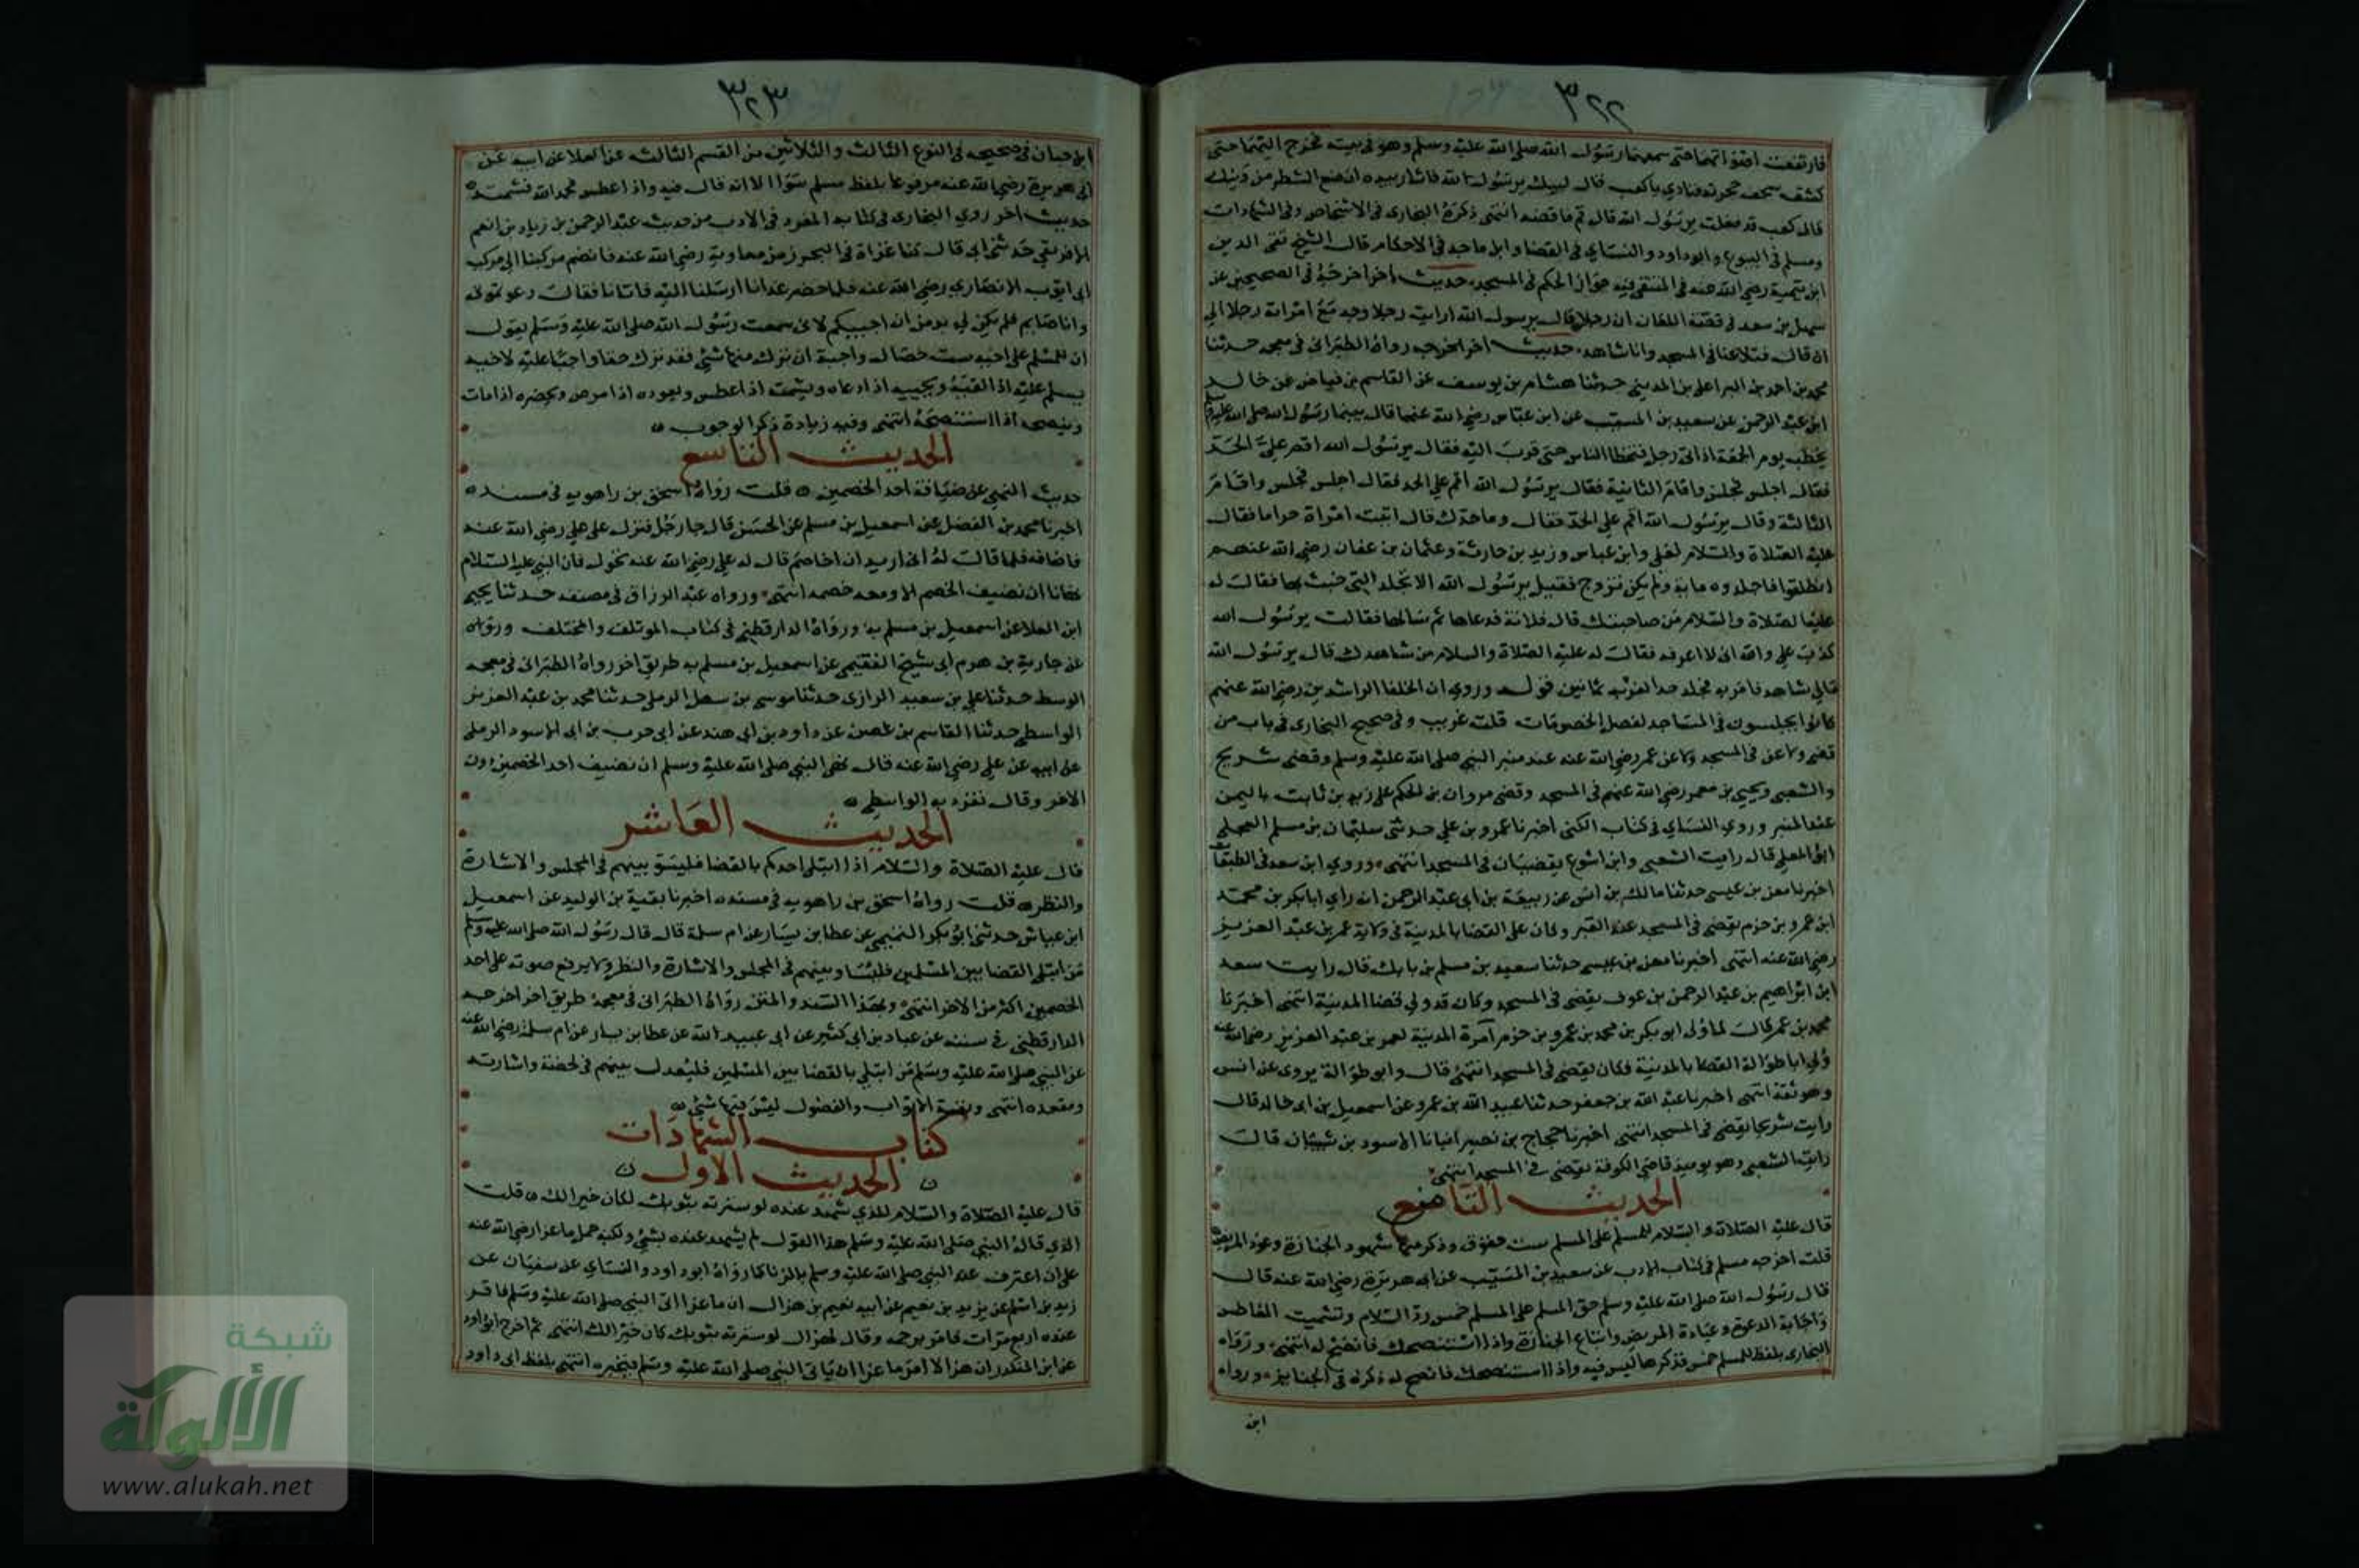 ٣٢٢
فارتفعت اصواتهما حتى سمعهما رسول الله صلى الله عليه وسلم وهو في بيته فخرج اليهما حتى
كشف سجف حجرته فنادي ياكعب قال لبيك يرسول الله فاشار بيده ان ضع الشطر من دينك
قال كعب قد فعلت يرسول الله قال قم فاقضه انتهى ذكره البخارى في الاشخاص وفي الشهادات
ومسلم في البيوع وابو داود والنساي في القضا وابن ماجه في الاحكام قال الشيخ تقى الدين
ابن تيمية رضي الله عنه في المنتقى فيه جواز الحكم في المسجد، حديث اخر اخرجه في الصحيحين عن
سهل بن سعد في قصة اللعان ان رجلا قال يرسول الله ارايت رجلا وجد مع امراته رجلا الي
ان قال فتلاعنا في المسجد وانا شاهد، حديث اخر اخرجه رواه الطبراني في معجمه حدثنا
محمد بن احمد بن البرا على بن المديني حدثنا هشام بن يوسف عن القاسم بن فياض عن خالد
ابن عبد الرحمن عن سعيد بن المسيب عن ابن عباس رضي الله عنهما قال بينما رسول الله صلى الله عليه وسلم
يخطب يوم الجمعة اذ اتى رجل فتخطا الناس حتى قرب اليه فقال يرسول الله اقم علي الحد
فقال اجلس فجلس وقام الثانية فقال يرسول الله اقم علي الحد فقال اجلس فجلس وقام
الثالثة وقال يرسول الله اقم علي الحد فقال وما حدك قال اتيت امراة حراما فقال
عليه الصلاة والسلام لعلي وابن عباس وزيد بن حارثة وعثمان بن عفان رضي الله عنهم
انطلقوا فاجلدوه ماية ولم يكن تزوج فقيل يرسول الله الا تجلد التى خبث بها فقال له
عليه الصلاة والسلام من صاحبتك قال فلانة فدعاها ثم سالها فقالت يرسول الله
كذب علي والله انى لا اعرفه فقال له عليه الصلاة والسلام من شاهدك قال يرسول الله
مالي شاهد فامر به فجلد حد الفرية ثمانين قوله وروي ان الخلفا الراشدين رضي الله عنهم
كانوا يجلسون في المساجد لفصل الخصومات قلت غريب وفي صحيح البخارى في باب من
قضى ولاعن في المسجد ولاعن عمر رضي الله عنه عند منبر النبي صلى الله عليه وسلم وقضى شريح
والشعبي ويحيى بن معمر رضي الله عنهم في المسجد وقضى مروان بن الحكم على زيد بن ثابت باليمن
عند المنبر وروي النساي في كتاب الكنى اخبرنا عمرو بن علي حدثني سليمان بن مسلم العجلي
ابو المعلي قال رايت الشعبي وابن اشوع يقضيان في المسجد انتهى، وروي ابن سعد في الطبقات
اخبرنا معن بن عيسى حدثنا مالك بن انس عن ربيعة بن ابى عبد الرحمن انه راي ابا بكر بن محمد
ابن عمرو بن حزم يقضى في المسجد عند القبر وكان على القضا بالمدينة في ولاية عمر بن عبد العزيز
رضي الله عنه انتهى اخبرنا معن بن عيسى حدثنا سعيد بن مسلم بن بابك قال رايت سعد
ابن ابراهيم بن عبد الرحمن بن عوف يقضى في المسجد وكان قد ولي قضا المدينة انتهى اخبرنا
محمد بن عمر قال لما ولى ابو بكر بن محمد بن عمرو بن حزم امرة المدينة لعمر بن عبد العزيز رضي الله عنه
ولي ابا طوالة القضا بالمدينة فكان يقضى في المسجد انتهى قال وابو طوالة يروى عن انس
وهو ثقة انتهى اخبرنا عبد الله بن جعفر حدثنا عبيد الله بن عمرو عن اسمعيل بن ابى خالد قال
رايت شريحا يقضى في المسجد انتهى اخبرنا حجاج بن نصير انبانا الاسود بن شيبان قال
رايت الشعبى وهو يوميذ قاضي الكوفة يقضى في المسجد انتهى
الحديث الثامن
قال عليه الصلاة والسلام للمسلم على المسلم ست حقوق وذكر منها شهود الجنازة وعود المريض
قلت اخرجه مسلم في كتاب الادب عن سعيد بن المسيب عن ابى هريرة رضي الله عنه قال
قال رسول الله صلى الله عليه وسلم حق المسلم على المسلم خمس رد السلام وتشميت العاطس
واجابة الدعوة وعيادة المريض واتباع الجنازة واذا استنصحك فانصح له انتهى، ورواه
البخارى بلفظ للمسلم خمس فذكرها ليس فيه واذا استنصحك فانصح له ذكره في الجنايز، ورواه
ابن
٣٢٣
ابن حبان في صحيحه في النوع الثالث والثلاثين من القسم الثالث عن العلا عن ابيه عن
ابى هريرة رضي الله عنه مرفوعا بلفظ مسلم سوا الا انه قال فيه واذا عطس فحمد الله فشمته
حديث اخر روي البخارى في كتابه المفرد في الادب من حديث عبد الرحمن بن زياد بن انعم
الافريقي حدثنى ابى قال كنا غزاة في البحر زمن معاوية رضي الله عنه فانضم مركبنا الى مركب
ابى ايوب الانصارى رضي الله عنه فلما حضر غدانا ارسلنا اليه فاتانا فقال دعوتمونى
وانا صايم فلم يكن لي بد من ان اجيبكم لانى سمعت رسول الله صلى الله عليه وسلم يقول
ان للمسلم على اخيه ست خصال واجبة ان ترك منها شئ فقد ترك حقا واجبا عليه لاخيه
يسلم عليه اذا لقيه ويجيبه اذا دعاه ويشمته اذا عطس ويعوده اذا مرض ويحضره اذا مات
وينصحه اذا استنصحه انتهى وفيه زيادة ذكر الوجوب
الحديث التاسع
حديث النهي عن ضيافة احد الخصمين قلت رواه اسحق بن راهويه في مسنده
اخبرنا محمد بن الفضل عن اسمعيل بن مسلم عن الحسن قال جا رجل فنزل على علي رضي الله عنه
فاضافه فلما قال له انى اريد ان اخاصم قال له علي رضي الله عنه تحول فان النبي عليه السلام
نهانا ان نضيف الخصم الا ومعه خصمه انتهى، ورواه عبد الرزاق في مصنفه حدثنا يحيى
ابن العلا عن اسمعيل بن مسلم به، ورواه الدارقطني في كتاب الموتلف والمختلف ورواه
عن جارية بن هرم ابى شيخ الفقيمي عن اسمعيل بن مسلم به طريق اخر رواه الطبرانى في معجمه
الوسط حدثنا علي بن سعيد الرازى حدثنا موسى بن سهل الرملي حدثنا محمد بن عبد العزيز
الواسطي حدثنا القاسم بن غصن عن داود بن ابي هند عن ابى حرب بن ابى الاسود الرملى
عن ابيه عن علي رضي الله عنه قال نهى النبي صلى الله عليه وسلم ان نضيف احد الخصمين دون
الاخر وقال تفرد به الواسطي
الحديث العاشر
قال عليه الصلاة والسلام اذا ابتلى احدكم بالقضا فليسو بينهم في المجلس والاشارة
والنظر قلت رواه اسحق بن راهويه في مسنده اخبرنا بقية بن الوليد عن اسمعيل
ابن عياش حدثني ابو بكر التميمي عن عطا بن يسار عن ام سلمة قال قال رسول الله صلى الله عليه وسلم
من ابتلى القضا بين المسلمين فليسا وبينهم في المجلس والاشارة والنظر ولا يرفع صوته على احد
الخصمين اكثر من الاخر انتهى، وبهذا السند والمتن رواه الطبرانى في معجمه طريق اخر اخرجه
الدارقطني في سننه عن عباد بن ابى كثير عن ابى عبيد الله عن عطا بن يسار عن ام سلمة رضي الله عنه
عن النبي صلى الله عليه وسلم من ابتلي بالقضا بين المسلمين فليعدل بينهم في لحضه واشارته
ومقعده انتهى وبقية الابواب والفصول ليس فيها شئ
كتاب الشهادات
الحديث الاول
قال عليه الصلاة والسلام للذي شهد عنده لو سترته بثوبك لكان خيرا لك قلت
الذي قال له النبي صلى الله عليه وسلم هذا القول لم يشهد عنده بشئ ولكنه حمل ماعزا رضي الله عنه
على ان اعترف عند النبي صلى الله عليه وسلم بالزنا كما رواه ابو داود والنساي عن سفيان عن
زيد بن اسلم عن يزيد بن نعيم عن ابيه نعيم بن هزال ان ماعزا اتى النبي صلى الله عليه وسلم فاقر
عنده اربع مرات فامر برجمه وقال لهزال لو سترته بثوبك كان خيرا لك انتهى ثم اخرج ابو داود
عن ابن المنكدر ان هزالا امر ماعزا ان ياتى النبي صلى الله عليه وسلم فيخبره انتهى بلفظ ابى داود
شبكة
الألوكة
www.alukah.net